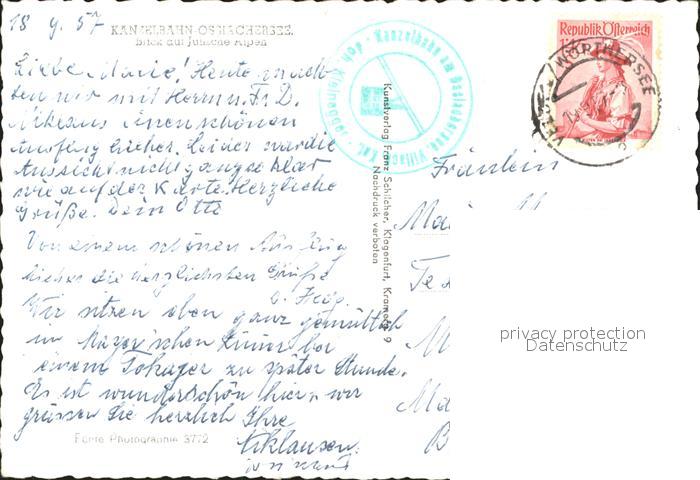 18 9. 57
KANZELBAHN-OSSIACHERSEE.
Blick auf Julische Alpen
Liebe Marie! Heute mach-
ten wir mit Herrn u. Fr. D.
Niklaus einen schönen
Ausflug hieher. Leider war die
Aussicht nicht ganz so klar
wie auf der Karte. Herzliche
Grüße. Dein Otto
Von einem schönen Ausflug
hieher die herzlichsten Grüße
Wir sitzen eben ganz gemütlich
im Zimmer bei
einem Tokayer zu später Stunde.
Es ist wunderschön hier, wir
grüssen Sie herzlich Ihre
Niklausen
Echte Photographie 3772
Kanzelbahn am Ossiachersee, Villach
Kunstverlag Franz Schilcher, Klagenfurt, Kramerg. 9
Nachdruck verboten
Republik Österreich
WÖRTHERSEE
Fräulein
Ma
Te
M
Ma
B
privacy protection
Datenschutz